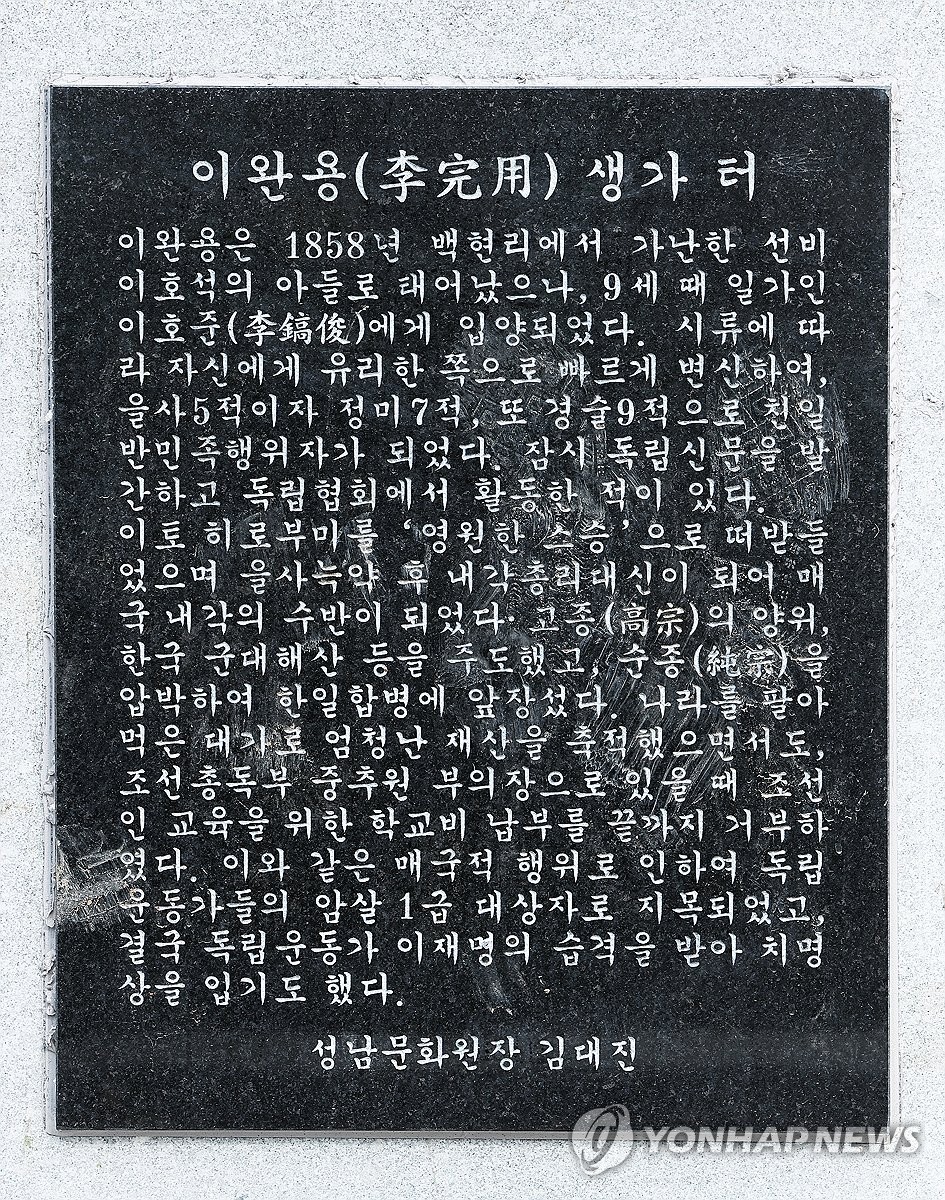 이완용(李完用) 생가 터
이완용은 1858년 백현리에서 가난한 선비
이호석의 아들로 태어났으나, 9세 때 일가인
이호준(李鎬俊)에게 입양되었다. 시류에 따
라 자신에게 유리한 쪽으로 빠르게 변신하여,
을사5적이자 정미7적, 또 경술9적으로 친일
반민족행위자가 되었다. 잠시 독립신문을 발
간하고 독립협회에서 활동한 적이 있다.
이토 히로부미를 ‘영원한 스승’으로 떠받들
었으며 을사늑약 후 내각총리대신이 되어 매
국 내각의 수반이 되었다. 고종(高宗)의 양위,
한국 군대해산 등을 주도했고, 순종(純宗)을
압박하여 한일합병에 앞장섰다. 나라를 팔아
먹은 대가로 엄청난 재산을 축적했으면서도,
조선총독부 중추원 부의장으로 있을 때 조선
인 교육을 위한 학교비 납부를 끝까지 거부하
였다. 이와 같은 매국적 행위로 인하여 독립
운동가들의 암살 1급 대상자로 지목되었고,
결국 독립운동가 이재명의 습격을 받아 치명
상을 입기도 했다.
성남문화원장 김대진
YONHAP NEWS